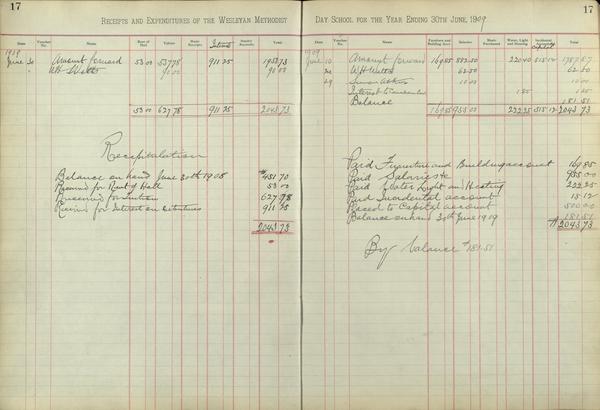 17
RECEIPTS AND EXPENDITURES OF THE WESLEYAN METHODIST
Date Voucher No. Name Rent of Hall Tuition Music Receipts Interest Sundry Receipts Total
1909
June 30 Amount forward 53 00 537 78 911 25 1953 73
" WH Watts 90 00 90 00
53 00 627 78 911 25 2043 73
Recapitulation
Balance on hand June 30th 1908 $451 70
Received for Rent of Hall 53 00
Received for Tuition 627 78
Received for Interest on 911 25
2043 73
DAY SCHOOL FOR THE YEAR ENDING 30TH JUNE, 1909
17
Date Voucher No. Name Furniture and Building Acct Salaries Music Purchased Water, Light and Heating Incidental Total
1909
June 10 Amount forward 169 85 882 50 220 40 515 12 1787 87
30 WH Watts 62 50 62 50
29 10 00 10 00
Interest to 1 85 1 85
Balance 181 51
169 85 955 00 222 25 515 12 2043 73
Paid Furniture and Building account 169 85
Paid Salaries &c 955 00
Paid Water Light and Heating 222 25
Paid Incidental account 15 12
to Capital account 500 00
Balance on hand 30th June 1909 181 51
$2043 73
By balance $181.51